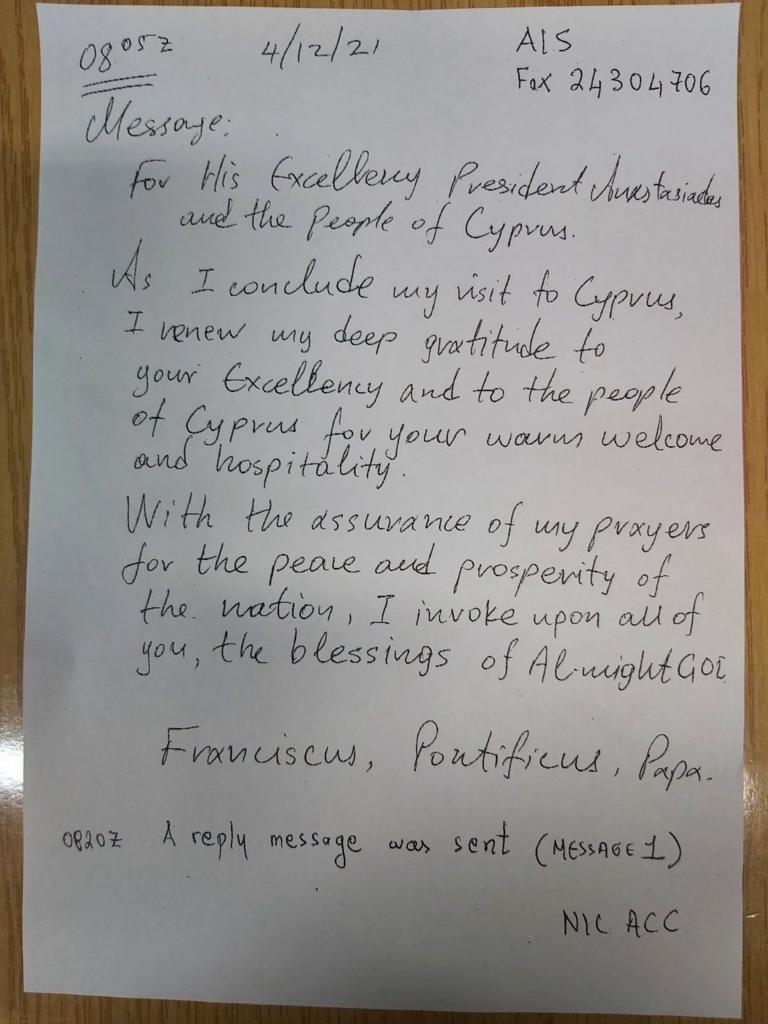 08 05 Z 4/12/21 AIS
Fax 24304706
Message:
For His Excellency President Anastasiades
and the People of Cyprus.
As I conclude my visit to Cyprus,
I renew my deep gratitude to
your Excellency and to the people
of Cyprus for your warm welcome
and hospitality.
With the assurance of my prayers
for the peace and prosperity of
the nation, I invoke upon all of
you, the blessings of Almight GOD
Franciscus, Pontificus, Papa.
0820Z A reply message was sent (MESSAGE 1)
NIC ACC